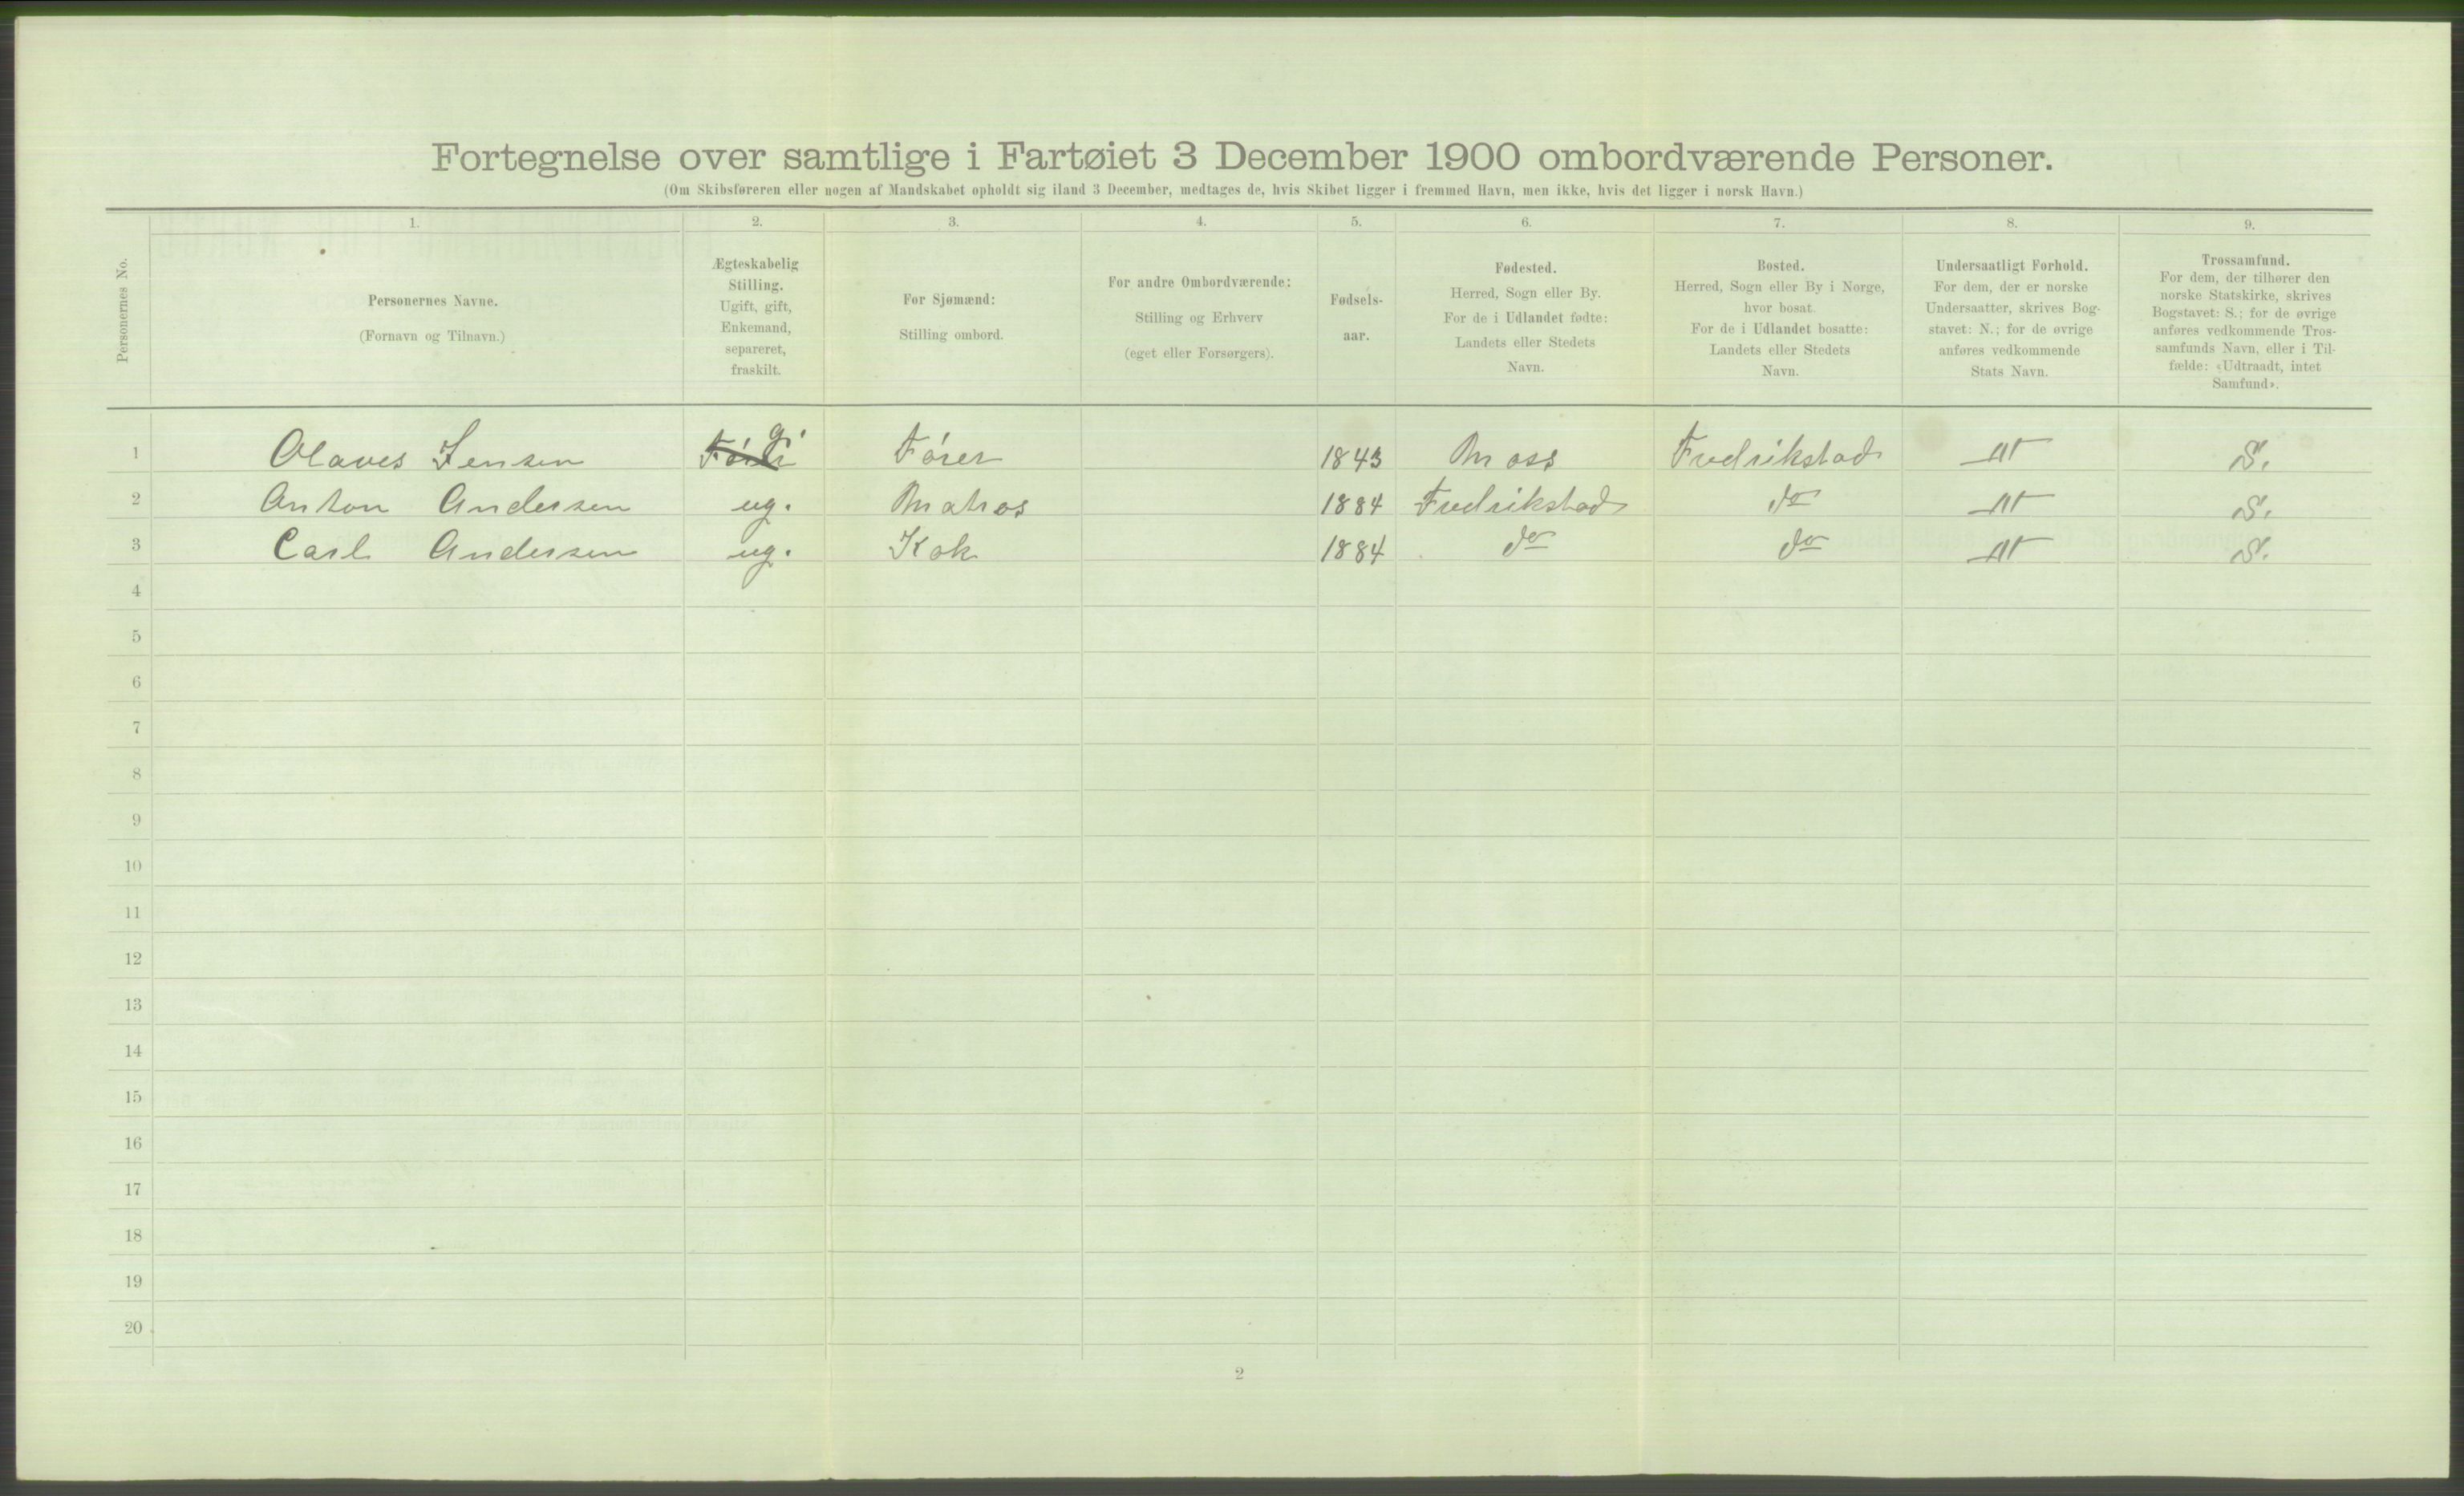 Fortegnelse over samtlige i Fartøiet 3 December 1900 ombordværende Personer.
(Om Skibsføreren eller nogen af Mandskabet opholdt sig iland 3 December, medtages de, hvis Skibet ligger i fremmed Havn, men ikke, hvis det ligger i norsk Havn.)
Personernes No.
1.
Personernes Navne.
(Fornavn og Tilnavn.)
2.
Ægteskabelig
Stilling.
Ugift, gift,
Enkemand,
separeret,
fraskilt.
3.
For Sjømænd:
Stilling ombord.
4.
For andre Ombordværende:
Stilling og Erhverv
(eget eller Forsørgers).
5.
Fødsels-
aar.
6.
Fødested.
Herred, Sogn eller By.
For de i Udlandet fødte:
Landets eller Stedets
Navn.
7.
Bosted.
Herred, Sogn eller By i Norge,
hvor bosat.
For de i Udlandet bosatte:
Landets eller Stedets
Navn.
8.
Undersaatligt Forhold.
For dem, der er norske
Undersaatter, skrives Bog-
stavet: N.; for de øvrige
anføres vedkommende
Stats Navn.
9.
Trossamfund.
For dem, der tilhører den
norske Statskirke, skrives
Bogstavet: S.; for de øvrige
anføres vedkommende Tros-
samfunds Navn, eller i Til-
fælde: «Udtraadt, intet
Samfund».
1 Olaves Jensen g. Fører 1843 Moss Fredrikstad N S.
2 Anton Andersen ug. Matros 1884 Fredrikstad do N S.
3 Carl Andersen ug. Kok 1884 do do N S.
4
5
6
7
8
9
10
11
12
13
14
15
16
17
18
19
20
2